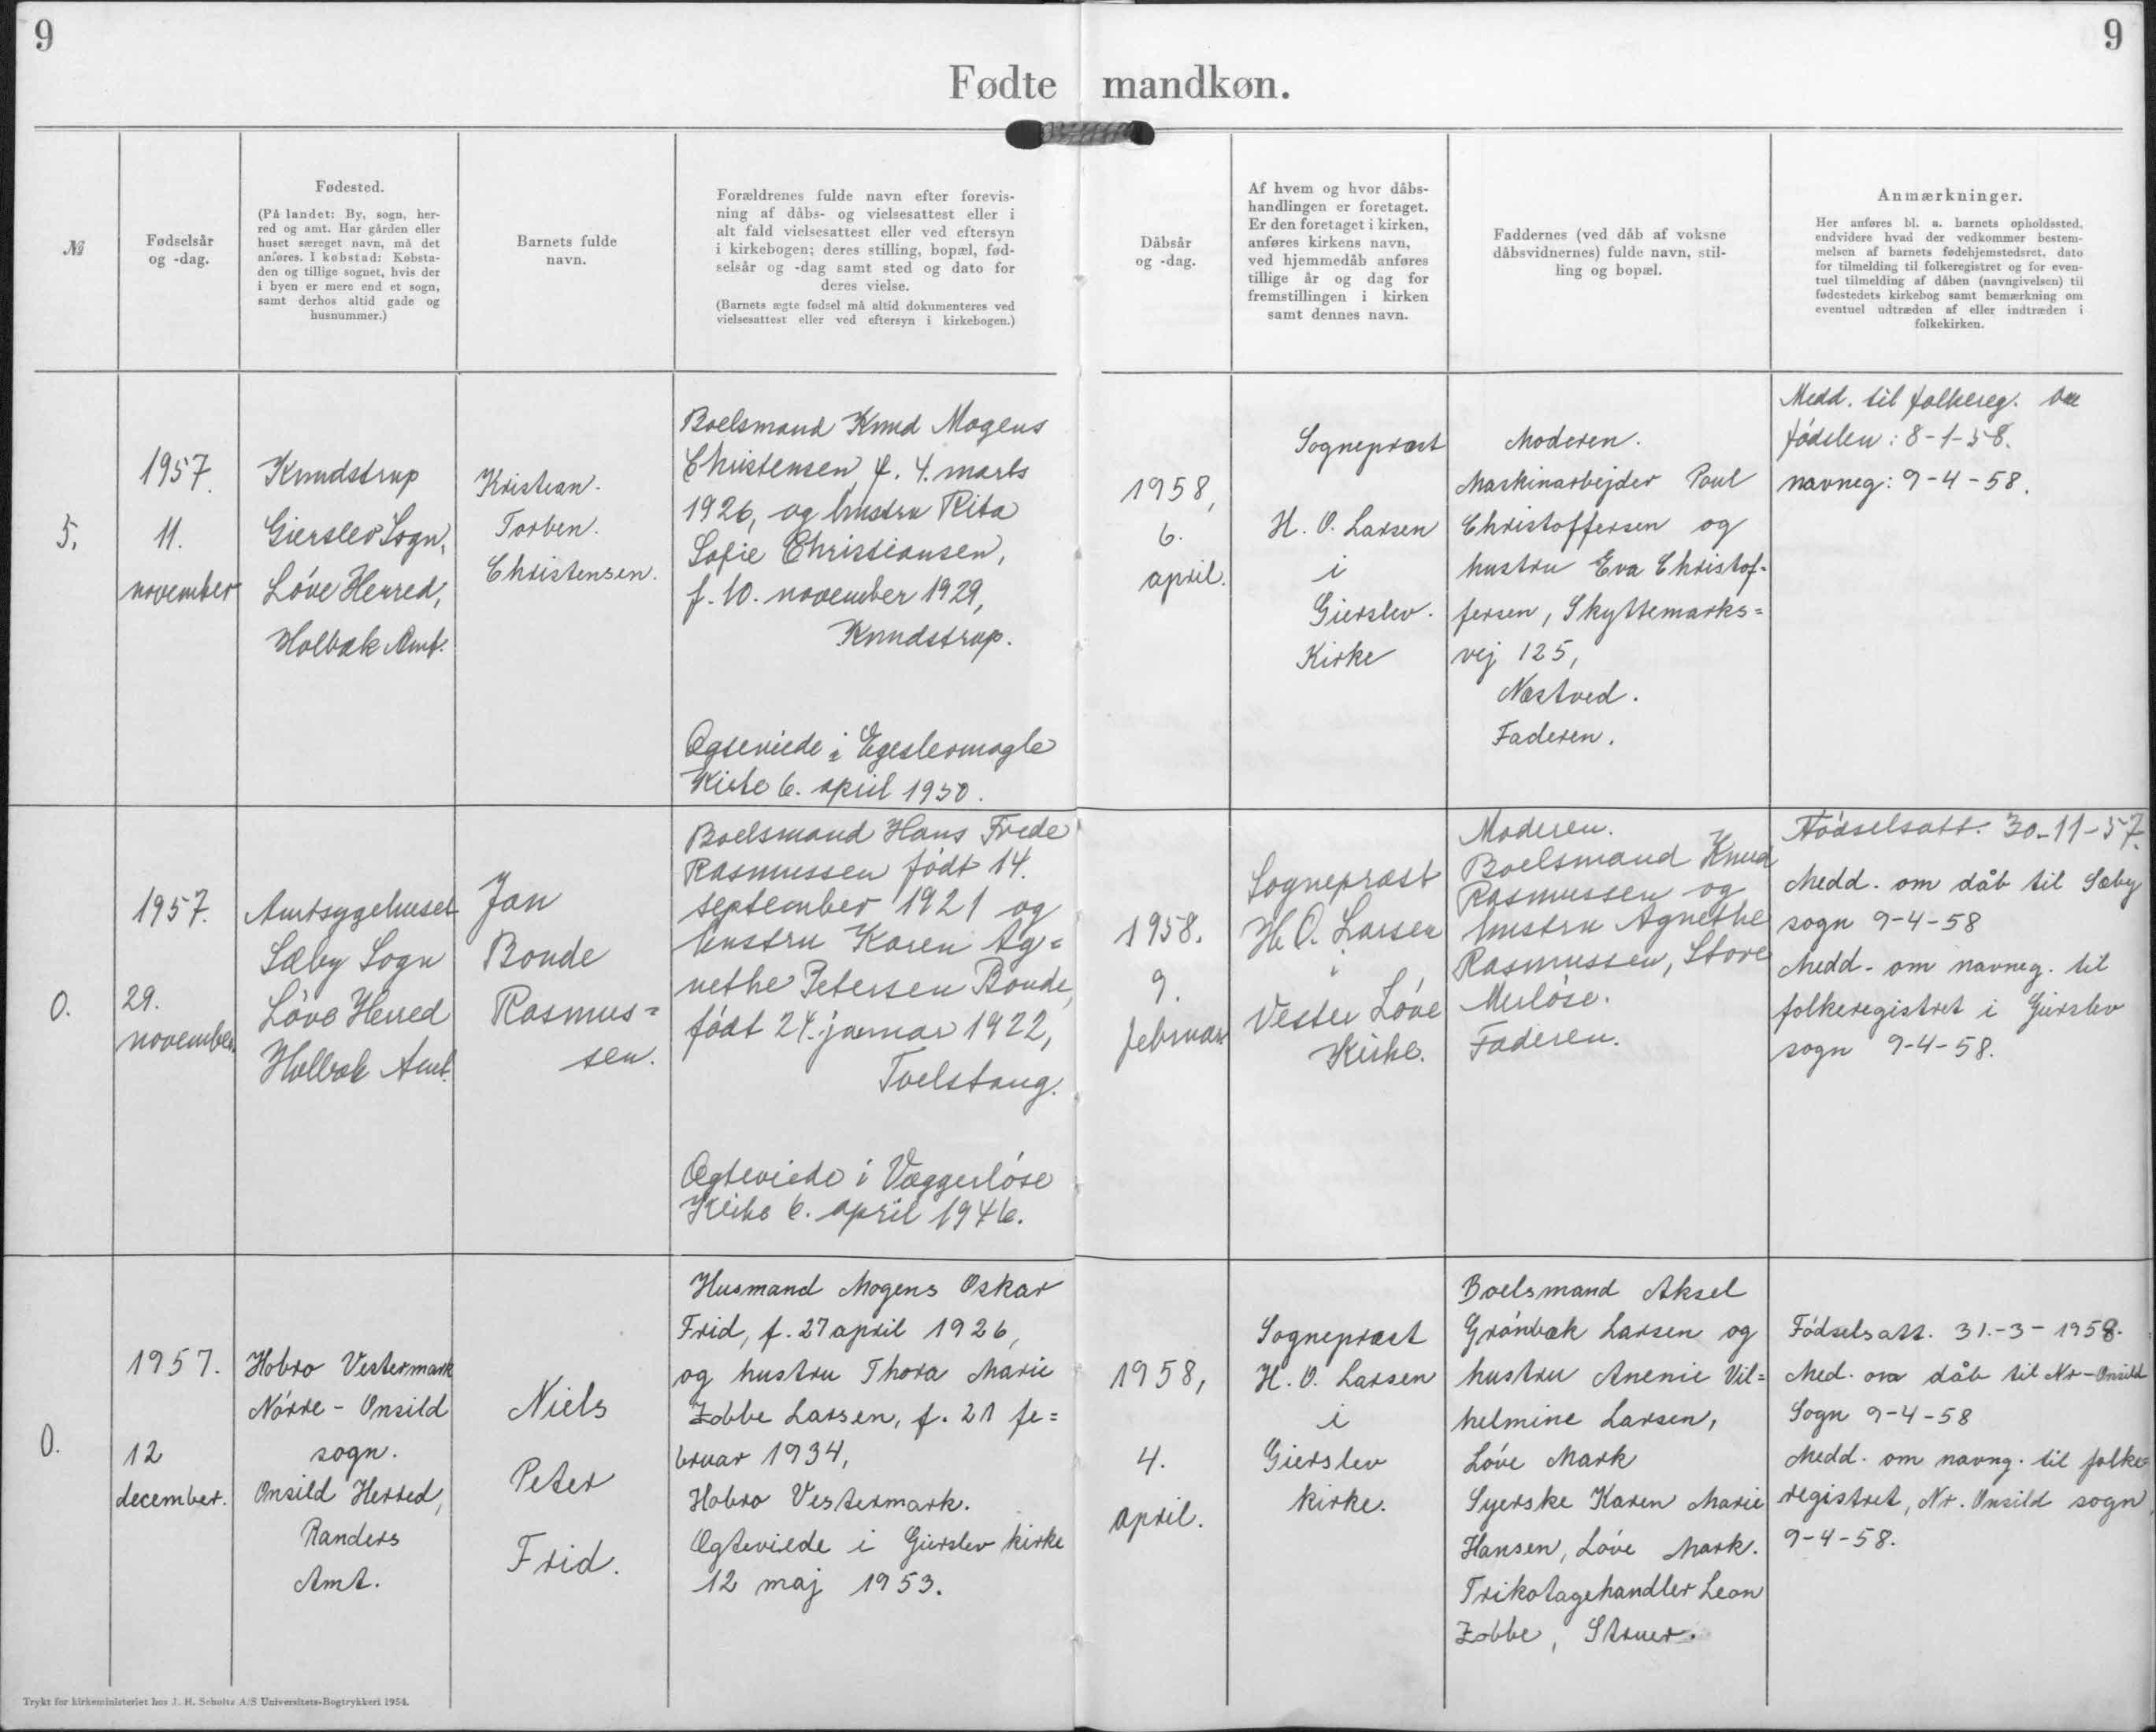 9
9
Fødte mandkøn.
№
Fødselsår
og -dag.
Fødested.
(På landet: By, sogn, her-
red og amt. Har gården eller
huset særeget navn, må det
anføres. I købstad: Købsta-
den og tillige sognet, hvis der
i byen er mere end et sogn,
samt derhos altid gade og
husnummer.)
Barnets fulde
navn.
Forældrenes fulde navn efter forevis-
ning af dåbs- og vielsesattest eller i
alt fald vielsesattest eller ved eftersyn
i kirkebogen; deres stilling, bopæl, fød-
selsår og -dag samt sted og dato for
deres vielse.
(Barnets ægte fødsel må altid dokumenteres ved
vielsesattest eller ved eftersyn i kirkebogen.)
Dåbsår
og -dag.
Af hvem og hvor dåbs-
handlingen er foretaget.
Er den foretaget i kirken,
anføres kirkens navn,
ved hjemmedåb anføres
tillige år og dag for
fremstillingen i kirken
samt dennes navn.
Faddernes (ved dåb af voksne
dåbsvidnernes) fulde navn, stil-
ling og bopæl.
Anmærkninger.
Her anføres bl. a. barnets opholdssted,
endvidere hvad der vedkommer bestem-
melsen af barnets fødehjemstedsret, dato
for tilmelding til folkeregistret og for even-
tuel tilmelding af dåben (navngivelsen) til
fødestedets kirkebog samt bemærkning om
eventuel udtræden af eller indtræden i
folkekirken.
5.
1957.
11.
november
Knudstrup
Gierslev Sogn,
Løve Herred,
Holbæk Amt.
Kristian.
Torben.
Christensen.
Boelsmand Knud Mogens
Christensen, f. 4. marts
1926, og hustru Rita
Sofie Christiansen,
f. 10. november 1929,
Knudstrup.
Ægteviede i Egeslevmagle
Kirke 6. april 1950.
1958,
6.
april.
Sognepræst
H. O. Larsen
i
Gierslev.
Kirke
Moderen.
Maskinarbejder Poul
Christoffersen og
hustru Eva Christof-
fersen, Skyttemarks=
vej 125,
Næstved.
Faderen.
Medd. til folkereg. om
fødslen: 8-1-58.
navneg: 9-4-58.
0.
1957.
29.
november
Amtsygehuset
Sæby Sogn
Løve Herred
Holbæk Amt.
Jan
Bonde
Rasmus=
sen.
Boelsmand Hans Frede
Rasmussen født 14.
september 1921 og
hustru Karen Ag=
nethe Petersen Bonde,
født 24. januar 1922,
Tvelstang.
Ægteviede i Væggerløse
Kirke 6. april 1946.
1958.
9.
februar
Sognepræst
H. O. Larsen
i
Vester Løve
Kirke.
Moderen.
Boelsmand Knud
Rasmussen og
hustru Agnethe
Rasmussen, Store
Merløse.
Faderen.
Fødselsatt. 30-11-57.
Medd. om dåb til Sæby
sogn 9-4-58
Medd. om navneg. til
folkeregistret i Gierslev
sogn 9-4-58.
0.
1957.
12
december.
Hobro Vestermark
Nørre - Onsild
sogn.
Onsild Herred,
Randers
Amt.
Niels
Peter
Frid.
Husmand Mogens Oskar
Frid, f. 27 april 1926,
og hustru Thora Marie
Zobbe Larsen, f. 21 fe=
bruar 1934,
Hobro Vestermark.
Ægteviede i Gierslev kirke
12 maj 1953.
1958,
4.
april.
Sognepræst
H. O. Larsen
i
Gierslev
kirke.
Boelsmand Aksel
Grønbæk Larsen og
hustru Anenie Vil=
helmine Larsen,
Løve Mark
Syerske Karen Marie
Hansen, Løve Mark.
Trikotagehandler Leon
Zobbe, Struer.
Fødselsatt. 31.-3-1958.
Med. om dåb til Nr-Onsild
Sogn 9-4-58
Medd. om navng. til folke=
registret, Nr. Onsild sogn,
9-4-58.
Trykt for kirkeministeriet hos J. H. Schultz A/S Universitets-Bogtrykkeri 1954.